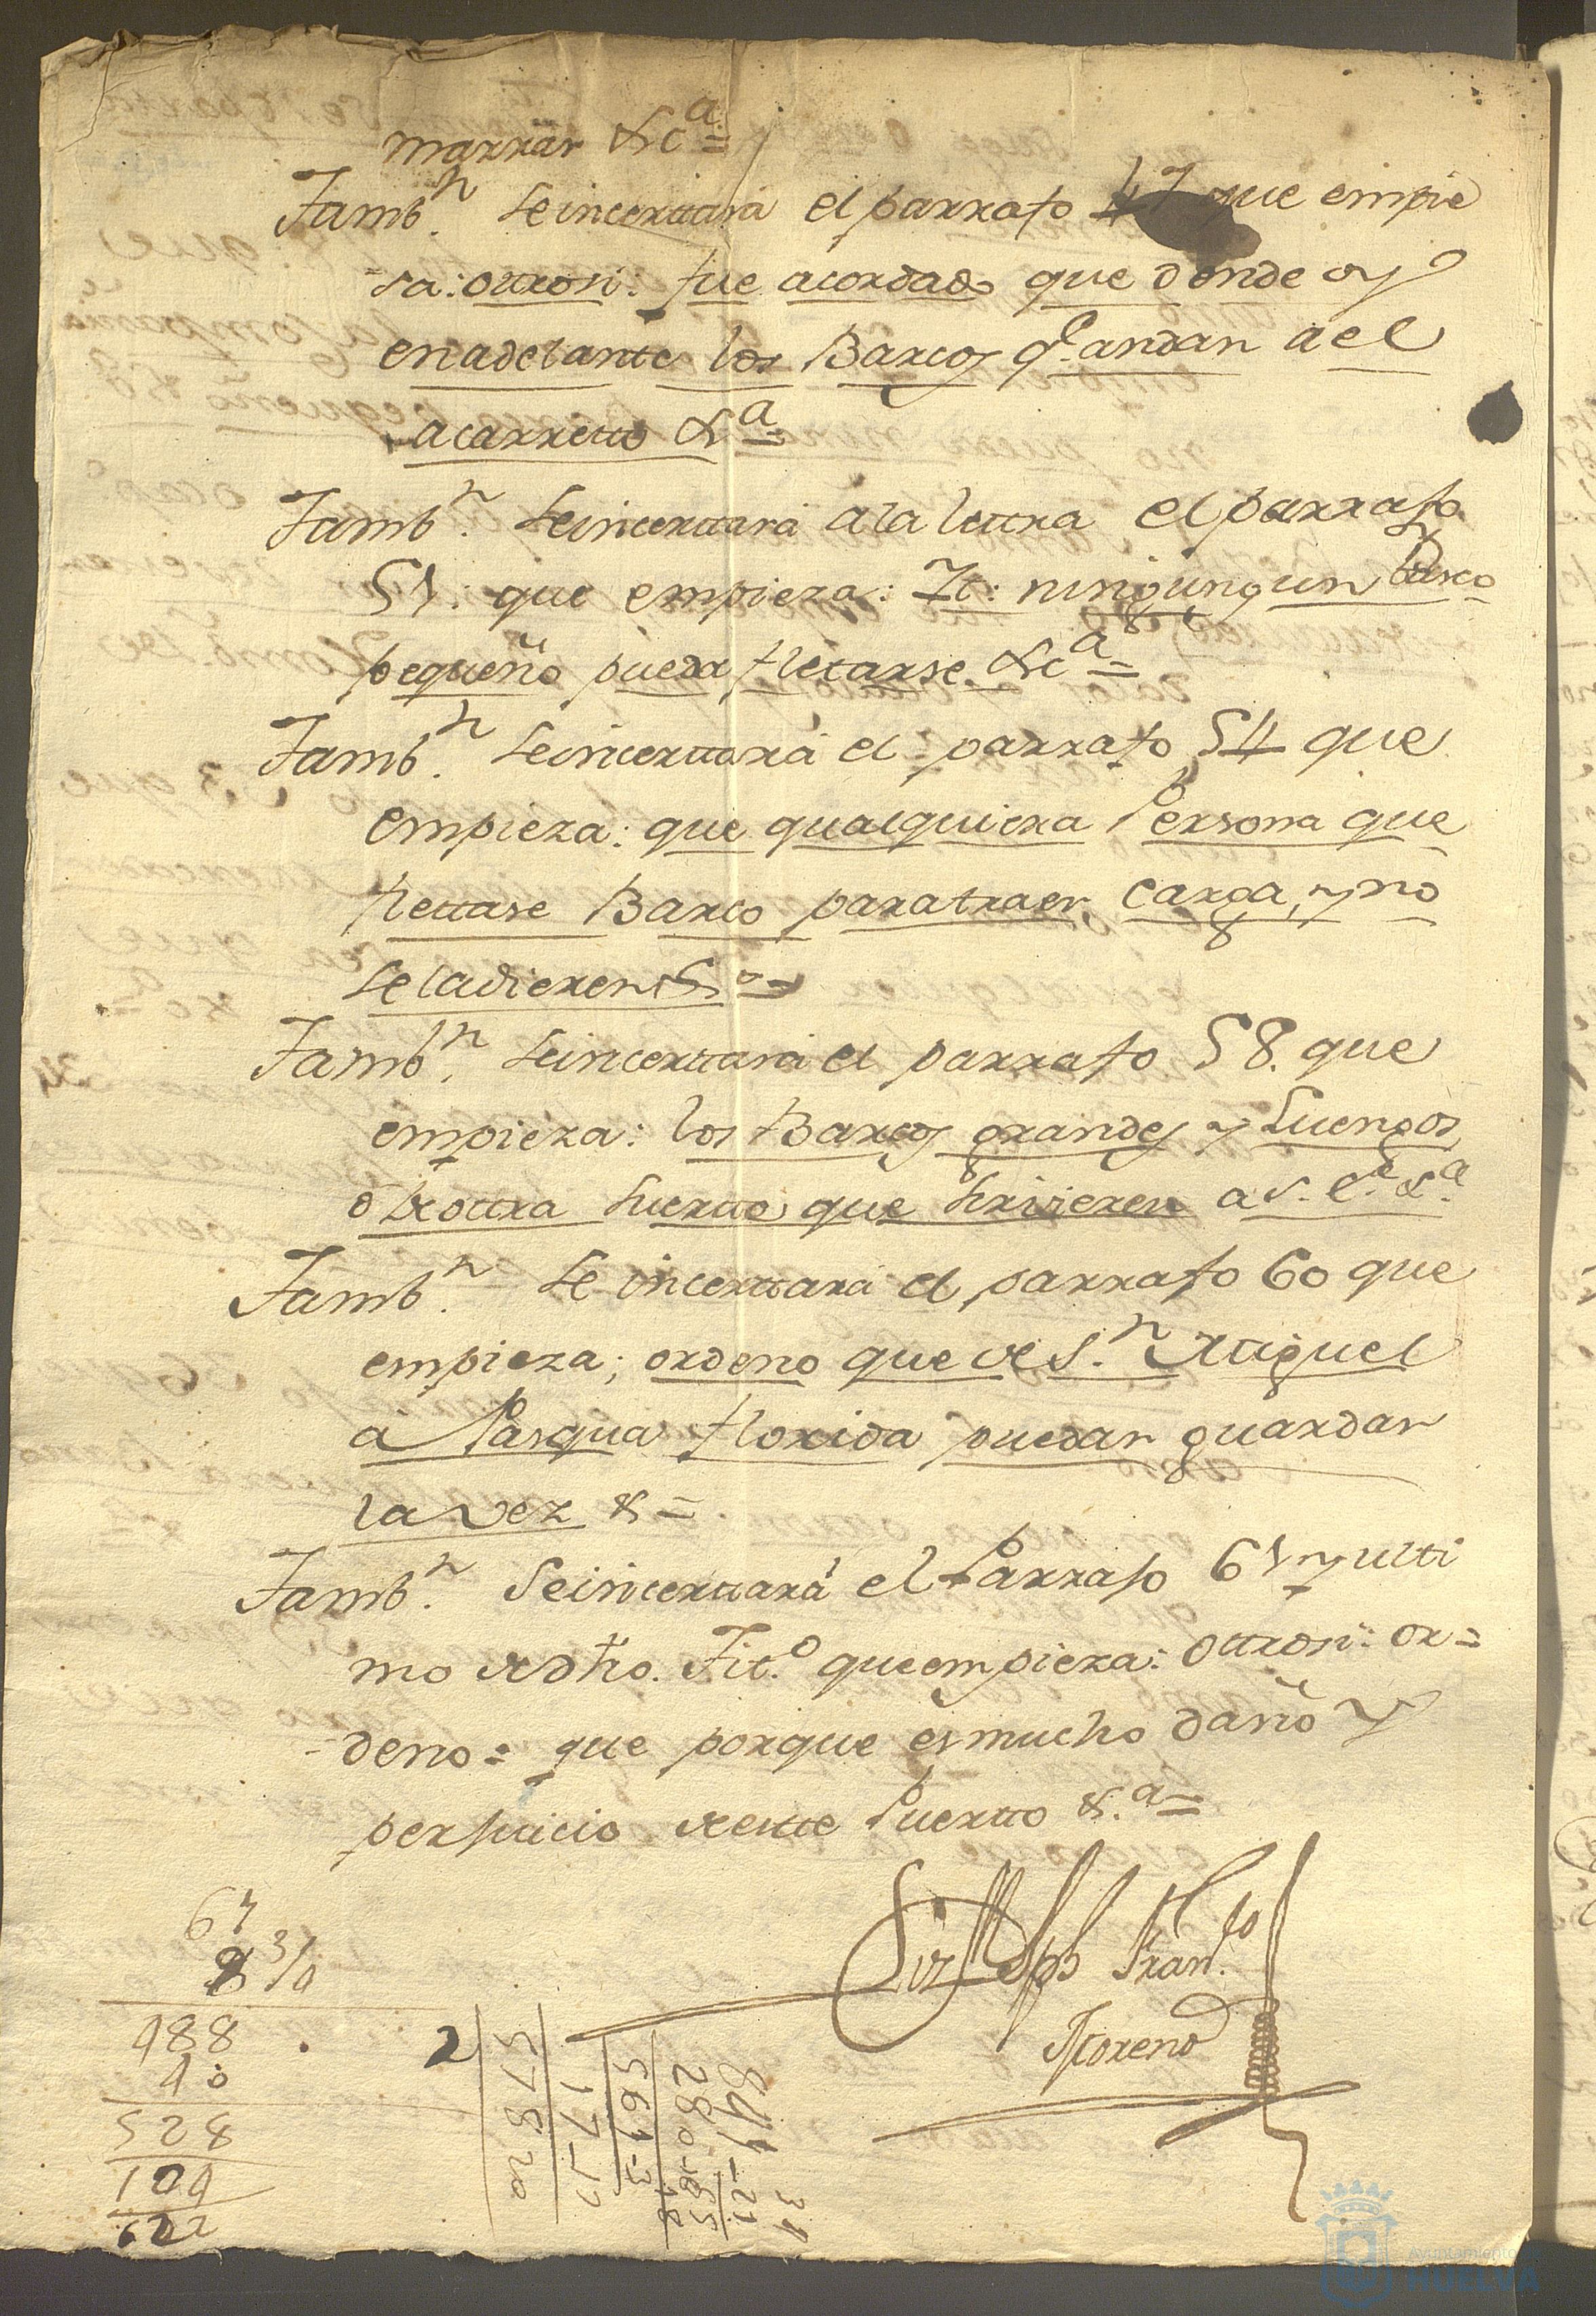 marrar &c.ª=
Tamb.n seincerttará el parrafo 47 que empie
sa: ottrosi: fue acordado que donde oy
enadelante los Barcos q.e andan ael
acarretto &.ª=
Tamb.n seincerttará ala lettra el parrafo
51. que empieza: It: ningungun Barco
pequeño pueda fletarse &c.ª=
Tamb.n seincerttará el parrafo 54 que
empieza: que qualquiera Persona que
flettase Barco paratraer carga, y no
seladieren &.ª=
Tamb.n seincerttará el parrafo 58. que
empieza: los Barcos grandes y Luengos
ó de ottra suertte que sirvieren a s. e.e &.ª
Tamb.n se incerttará el parrafo 60 que
empieza; ordeno que de S.n Miguel
á Pasqua florida puedan guardar
la vez &=
Tamb.n Seincerttará el Parrafo 61 y ulti
mo de dho. Tit.o queempieza: Ottrosi: or=
deno= que porque es mucho daño y
perjuicio de este Puertto &.ª=
Liz.do Jph Fran.co
Moreno
61
8 3/0
488
40
528
104
2
57820
17-17
561-3
280-
841-21
34
Ayuntamiento de
HUELVA